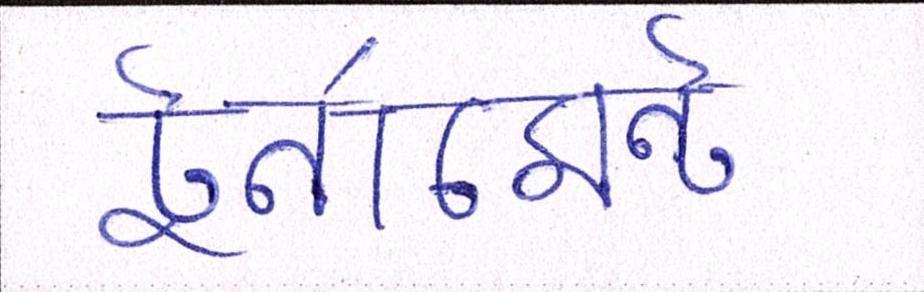 টুর্নামেন্ট